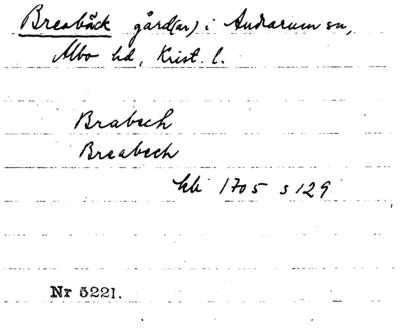 Breabäck gård(ar) i Andrarum sn,
Albo hd, Krist. l.
Brabech
Breabech
kb 1705 s 129
Nr 5221.